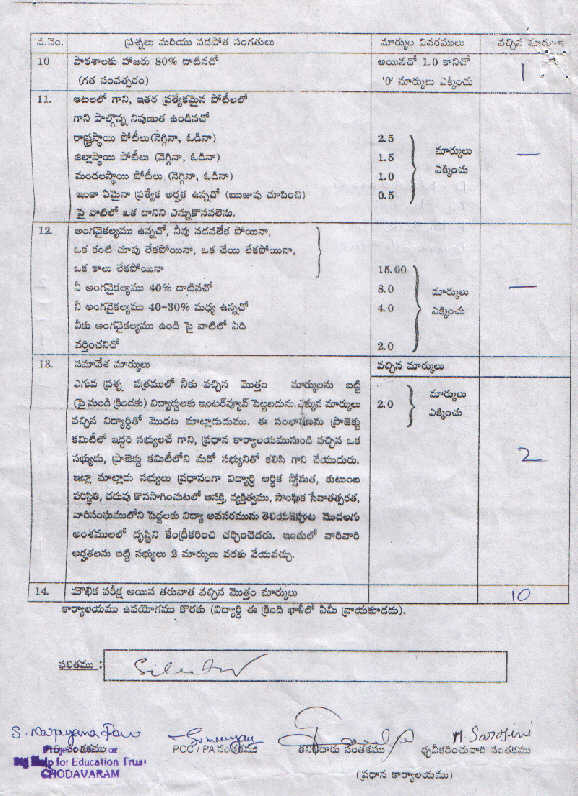 వ.నెం. ప్రశ్నలు మరియు పడపోత సంగతులు మార్కుల వివరములు వచ్చిన మార్కులు
10 పాఠశాలకు హాజరు 80% దాటినచో అయినచో 1.0 కానిచో 1
(గత సంవత్సరం) '0' మార్కులు ఎక్కించు
11. ఆటలలో గాని, ఇతర ప్రత్యేకమైన పోటీలలో
గాని పాల్గొన్న నిపుణుత ఉండినచో
రాష్ట్రస్థాయి పోటీలు(నెగ్గినా, ఓడినా) 2.5 మార్కులు
జిల్లాస్థాయి పోటీలు (నెగ్గినా, ఓడినా) 1.5 ఎక్కించు —
మండలస్థాయి పోటీలు (నెగ్గినా, ఓడినా) 1.0
ఇంకా ఏమైనా ప్రత్యేక అర్హత ఉన్నచో (ఋజువు చూపించి) 0.5
పై వాటిలో ఒక దానిని ఎన్నుకొనవలెను.
12. అంగవైకల్యము ఉన్నచో, నీవు నడవలేక పోయినా,
ఒక కంటి చూపు లేకపోయినా, ఒక చేయి లేకపోయినా,
ఒక కాలు లేకపోయినా 15.00
నీ అంగవైకల్యము 40% దాటినచో 8.0 మార్కులు —
నీ అంగవైకల్యము 40-30% మధ్య ఉన్నచో 4.0 ఎక్కించు
నీకు అంగవైకల్యము ఉండి పై వాటిలో ఏది
వర్తించనిచో 2.0
13. సమావేశ మార్కులు వచ్చిన మార్కులు
ఎగువ ప్రశ్న పత్రములో నీకు వచ్చిన మొత్తం మార్కులను బట్టి
(పై నుండి క్రిందకు) విద్యార్థులకు ఇంటర్వ్యూవ్ పెట్టబడును ఎక్కువ మార్కులు 2.0 మార్కులు
వచ్చిన విద్యార్థితో మొదట మాట్లాడుదుము. ఈ సంభాషణను ప్రాజెక్టు ఎక్కించు
కమిటీలో ఇద్దరి సభ్యులచే గాని, ప్రధాన కార్యాలయమునుండి వచ్చిన ఒక
సభ్యుడు, ప్రాజెక్టు కమిటీలోని మరో సభ్యునితో కలిసి గాని చేయుదురు. 2
ఇట్లా మాట్లాడు సభ్యులు ప్రధానంగా విద్యార్థి ఆర్థిక స్తోమత, కుటుంబ
పరిస్థితి, చదువు కొనసాగించుటలో ఆసక్తి, వ్యక్తిత్వము, సాంఘిక సేవాతత్పరత,
వారిసంఘములోని పెద్దలకు విద్యా అవసరమును తెలియచెప్పుట మొదలగు
అంశములలో దృష్టిని కేంద్రీకరించి చర్చించెదరు. ఇందులో వారివారి
అర్హతలను బట్టి సభ్యులు 2 మార్కులు వరకు వేయవచ్చు.
14. మౌఖిక పరీక్ష అయిన తరువాత వచ్చిన మొత్తం మార్కులు 10
కార్యాలయము ఉపయోగము కొరకు (విద్యార్థి ఈ క్రింది ఖాళీలో ఏమీ వ్రాయకూడదు).
ఫలితము :
S. Narayana Rao M. Sarojini
సంతకము PCC / PA సంతకము తనిఖీదారు సంతకము ధృవీకరించువారి సంతకము
Big Help for Education Trust
CHODAVARAM
(ప్రధాన కార్యాలయము)